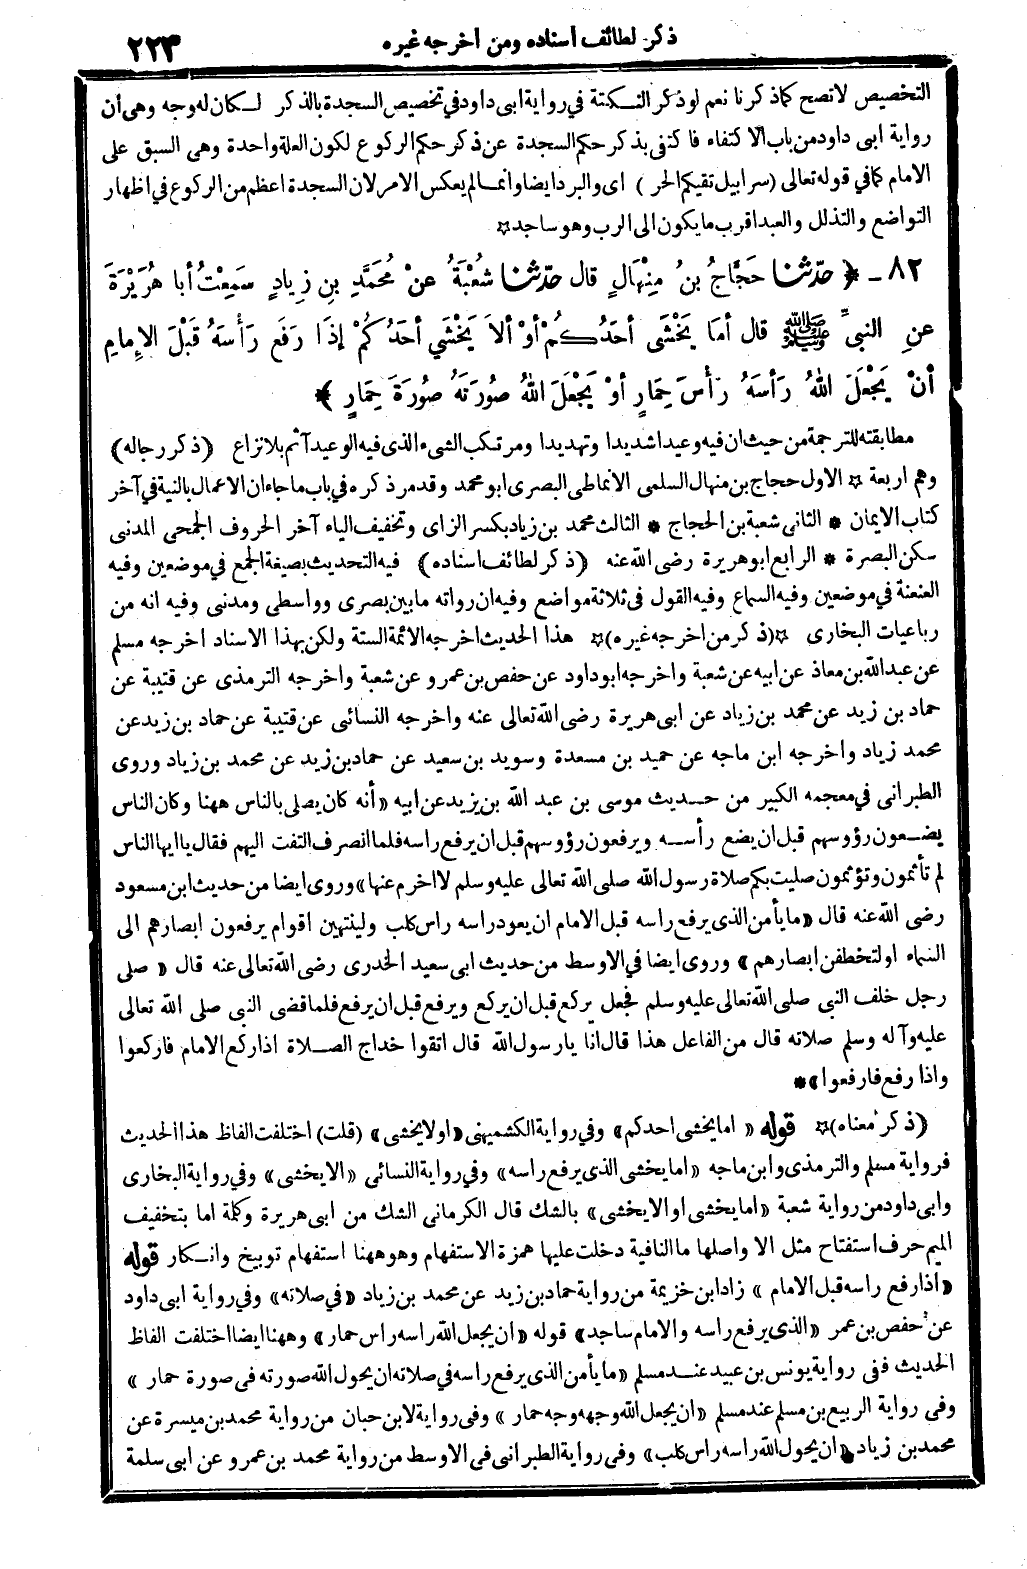 ذكر لطائف اسناده ومن اخرجه غيره ٢٢٣
التخصيص لا تصح كما ذكرنا نعم لو ذكر النكتة في رواية ابى داود في تخصيص السجدة بالذكر لكان له وجه وهى أن
رواية ابى داود من باب الا كتفاء فا كتفى بذكر حكم السجدة عن ذكر حكم الركوع لكون العلة واحدة وهى السبق على
الامام كما في قوله تعالى (سرابيل تقيكم الحر) اى والبرد ايضا وانما لم يعكس الامر لان السجدة اعظم من الركوع في اظهار
التواضع والتذلل والعبد اقرب ما يكون الى الرب وهو ساجد ☆
٨٢ - ﴿ حَدَّثنا حَجَّاجُ بنُ مِنْهَالٍ قال حَدَّثنا شُعْبَةُ عنْ مُحَمَّدِ بنِ زِيادٍ سَمِعْتُ أبا هُرَيْرَةَ
عنِ النبيِّ ﷺ قال أمَا يَخْشَى أحَدُكُمْ أوْ ألاَ يَخْشَي أحَدُكُمْ إذَا رَفَع رَأْسَهُ قَبْلَ الإِمامِ
أنْ يَجْعَلَ اللهُ رَأسَهُ رَأْسَ حِمَارٍ أوْ يَجْعَلَ اللهُ صُورَتَهُ صُورَةَ حِمَارٍ ﴾ *
مطابقته للترجمة من حيث ان فيه وعيدا شديدا وتهديدا ومرتكب الشىء الذى فيه الوعيد آثم بلا نزاع (ذكر رجاله)
وهم اربعة ☆ الاول حجاج بن منهال السلمى الانماطى البصرى ابو محمد وقد مر ذكره في باب ما جاء ان الاعمال بالنية في آخر
كتاب الايمان * الثانى شعبة بن الحجاج * الثالث محمد بن زياد بكسر الزاى وتخفيف الياء آخر الحروف الجمحى المدنى
سكن البصرة * الرابع ابو هريرة رضى الله عنه (ذكر لطائف اسناده) فيه التحديث بصيغة الجمع في موضعين وفيه
العنعنة في موضعين وفيه السماع وفيه القول فى ثلاثة مواضع وفيه ان رواته ما بين بصرى وواسطى ومدنى وفيه انه من
رباعيات البخارى ☆(ذكر من اخرجه غيره)☆ هذا الحديث اخرجه الائمة الستة ولكن بهذا الاسناد اخرجه مسلم
عن عبد الله بن معاذ عن ابيه عن شعبة واخرجه ابو داود عن حفص بن عمرو عن شعبة واخرجه الترمذى عن قتيبة عن
حماد بن زيد عن محمد بن زياد عن ابى هريرة رضى الله تعالى عنه واخرجه النسائى عن قتيبة عن حماد بن زيد عن
محمد زياد واخرجه ابن ماجه عن حميد بن مسعدة وسويد بن سعيد عن حماد بن زيد عن محمد بن زياد وروى
الطبرانى في معجمه الكبير من حديث موسى بن عبد الله بن يزيد عن ابيه «أنه كان يصلى بالناس ههنا وكان الناس
يضعون رؤوسهم قبل ان يضع رأسه ويرفعون رؤوسهم قبل ان يرفع راسه فلما انصرف التفت اليهم فقال يا ايها الناس
لم تأثمون وتؤثمون صليت بكم صلاة رسول الله صلى الله تعالى عليه وسلم لا اخرم عنها» وروى ايضا من حديث ابن مسعود
رضى الله عنه قال «ما يأمن الذى يرفع راسه قبل الامام ان يعود راسه راس كلب ولينتهين اقوام يرفعون ابصارهم الى
السماء او لتخطفن ابصارهم» وروى ايضا في الاوسط من حديث ابى سعيد الخدرى رضى الله تعالى عنه قال « صلى
رجل خلف النبى صلى الله تعالى عليه وسلم فجعل يركع قبل ان يركع ويرفع قبل ان يرفع فلما قضى النبى صلى الله تعالى
عليه وآله وسلم صلاته قال من الفاعل هذا قال انا يا رسول الله قال اتقوا خداج الصلاة اذا ركع الامام فاركعوا
واذا رفع فارفعوا»*
(ذكر معناه)☆ قوله «اما يخشى احدكم» وفي رواية الكشميهنى «اولا يخشى» (قلت) اختلفت الفاظ هذا الحديث
فرواية مسلم والترمذى وابن ماجه «اما يخشى الذى يرفع راسه» وفي رواية النسائى «الا يخشى» وفي رواية البخارى
وابى داود من رواية شعبة «اما يخشى او الا يخشى» بالشك قال الكرمانى الشك من ابى هريرة وكلمة اما بتخفيف
الميم حرف استفتاح مثل الا واصلها ما النافية دخلت عليها همزة الاستفهام وهو ههنا استفهام توبيخ وانكار قوله
«اذا رفع راسه قبل الامام» زاد ابن خزيمة من رواية حماد بن زيد عن محمد بن زياد «في صلاته» وفي رواية ابى داود
عن حفص بن عمر «الذى يرفع راسه والامام ساجد» قوله «ان يجعل الله راسه راس حمار» وههنا ايضا اختلفت الفاظ
الحديث ففى رواية يونس بن عبيد عند مسلم «ما يأمن الذى يرفع راسه في صلاته ان يحول الله صورته فى صورة حمار»
وفى رواية الربيع بن مسلم عند مسلم «ان يجعل الله وجهه وجه حمار» وفى رواية لابن حبان من رواية محمد بن ميسرة عن
محمد بن زياد «ان يحول الله راسه راس كلب» وفى رواية الطبرانى فى الاوسط من رواية محمد بن عمرو عن ابى سلمة